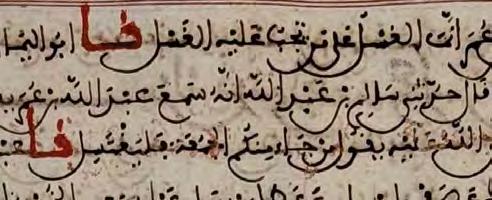 عمر انما الغسل على من تجب عليه الغسل نا ابو اليما
قال حدثني سالم بن عبد الله انه سمع عبد الله بن عمر يـ
الله عليه يقول من جاء منكم الجمعة فليغتسل نا عبـ